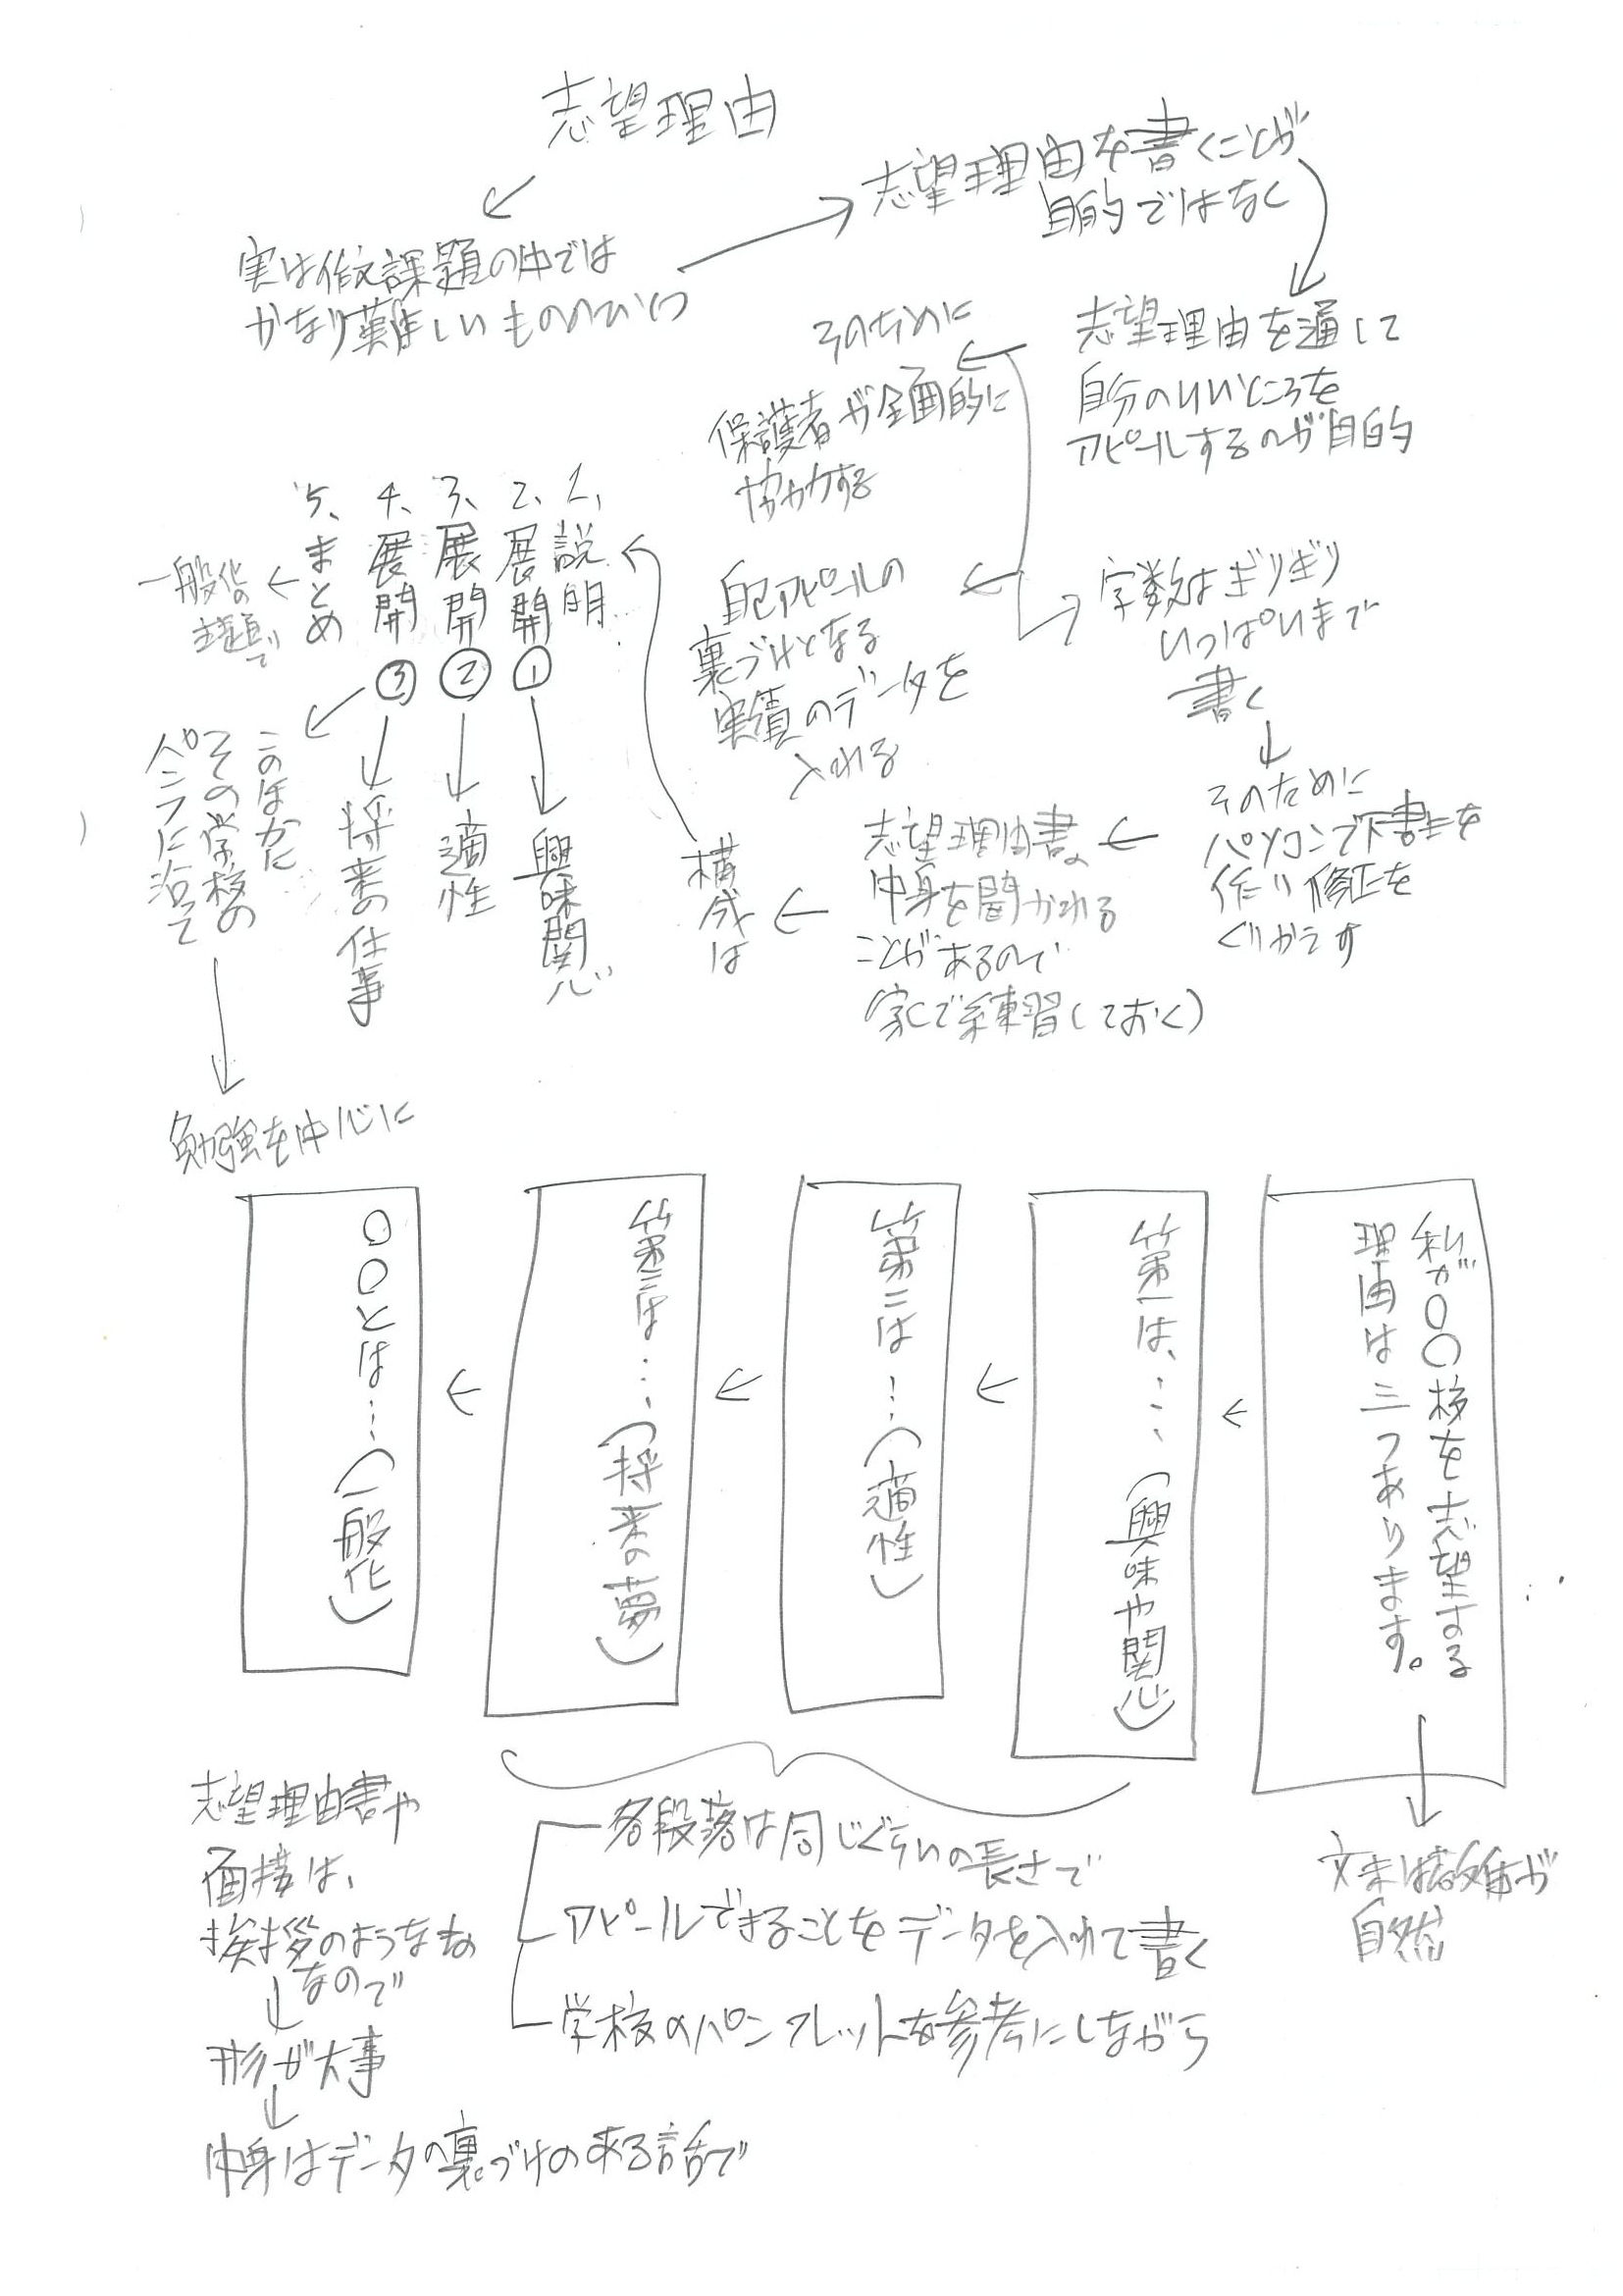 志望理由
実は作文課題の中では
かなり難しいもののひとつ
志望理由を書くことが
目的ではなく
志望理由を通して
自分のいいところを
アピールするのが目的
そのために
保護者が全面的に
協力する
自己アピールの
裏づけとなる
実績のデータを
入れる
字数はぎりぎり
いっぱいまで
書く
そのために
パソコンで下書きを
作り修正を
くりかえす
志望理由書の
中身を聞かれる
ことがあるので
家で練習しておく)
構成は
1、説明
2、展開①
3、展開②
4、展開③
5、まとめ
一般化の
主題で
興味関心
適性
将来の仕事
このほかに
その学校の
パンフに沿って
勉強を中心に
私が〇〇校を志望する
理由は三つあります。
第一は、…(興味や関心)
第二は…(適性)
第三は…(将来の夢)
〇〇とは…(一般化)
文末は敬体が
自然
各段落は同じぐらいの長さで
アピールできることをデータを入れて書く
学校のパンフレットを参考にしながら
志望理由書や
面接は、
挨拶のようなもの
なので
形が大事
中身はデータの裏づけのある話で